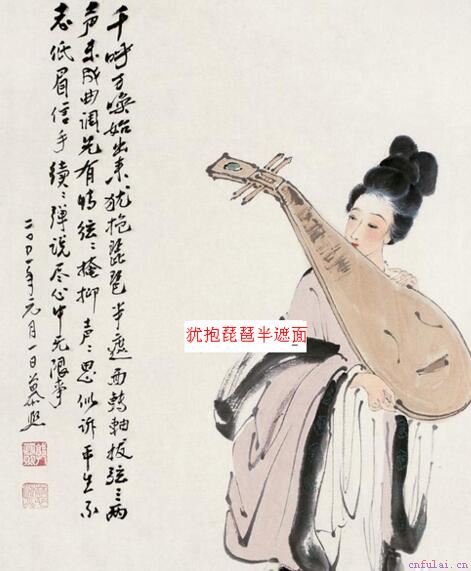 千呼万唤始出来犹抱琵琶半遮面轉軸拨弦三两
声未成曲调先有情弦々掩抑声々思似诉平生不
志低眉信手續々弹说尽心中无限事
二〇〇一年元月一日
犹抱琵琶半遮面
cnfulai.cn